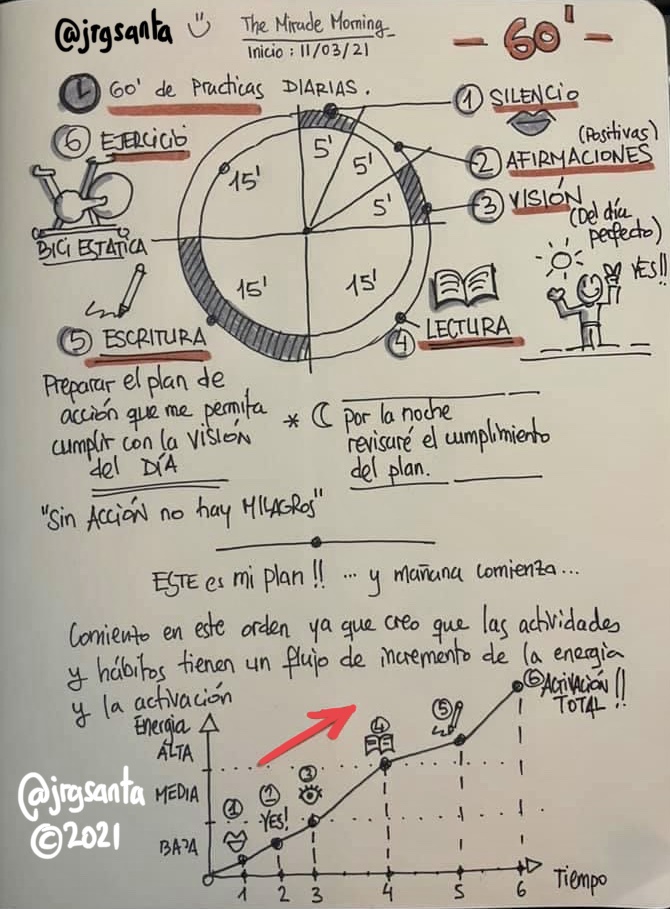 @jrgsanta
The Miracle Morning
Inicio : 11/03/21
- 60' -
60' de Practicas DIARIAS.
① SILENCIO
⑥ EJERCICIO
5'
5'
5'
15'
15'
15'
(Positivas)
② AFIRMACIONES
③ VISIÓN
(Del día perfecto)
YES!!
BICI ESTATICA
④ LECTURA
⑤ ESCRITURA
Preparar el plan de
acción que me permita
cumplir con la VISIÓN
del DÍA
* Por la noche
revisaré el cumplimiento
del plan.
"Sin ACCIÓN no hay MILAGROS"
ESTE es mi plan !! ... y mañana comienza...
Comienzo en este orden ya que creo que las actividades
y hábitos tienen un flujo de incremento de la energia
y la activación
Energia
ALTA
MEDIA
BAJA
①
②
YES!
③
④
⑤
⑥ ACTIVACIÓN !!
TOTAL
1 2 3 4 5 6
Tiempo
@jrgsanta
©2021